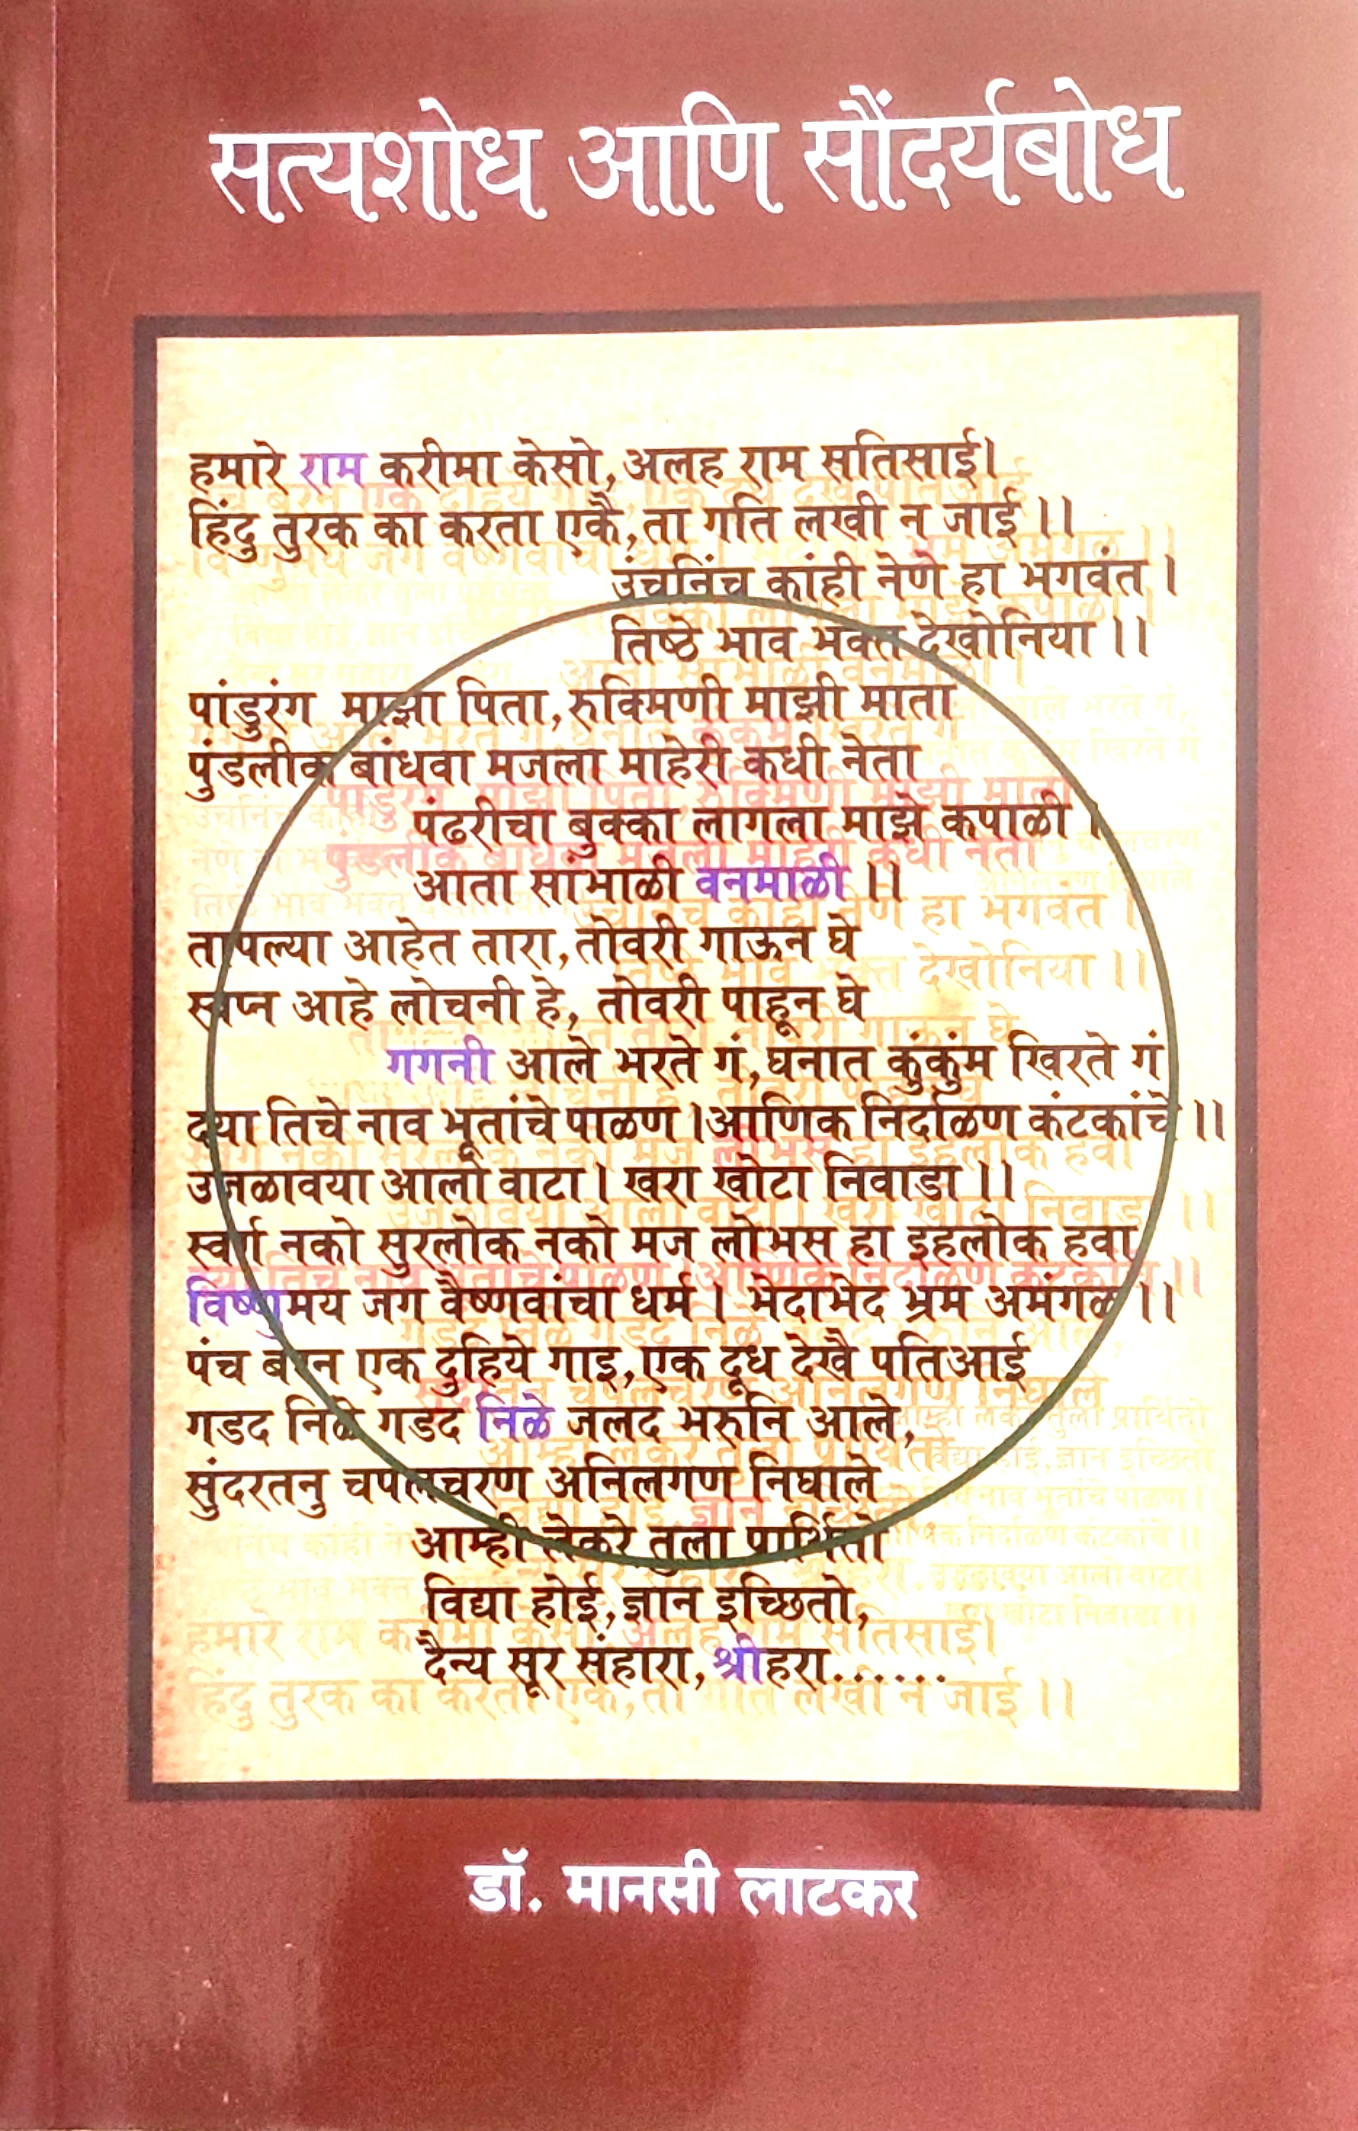 सत्यशोध आणि सौंदर्यबोध
हमारे राम करीमा केसो, अलह राम सतिसाई।
हिंदु तुरक का करता एकै, ता गति लखी न जाई ।।
उंचनिंच कांही नेणे हा भगवंत ।
तिष्ठे भाव भक्त देखोनिया ।।
पांडुरंग माझा पिता, रुक्मिणी माझी माता
पुंडलीक बांधवा मजला माहेरी कधी नेता
पंढरीचा बुक्का लागला माझे कपाळी ।
आता सांभाळी वनमाळी ।।
तापल्या आहेत तारा, तोवरी गाऊन घे
स्वप्न आहे लोचनी हे, तोवरी पाहून घे
गगनी आले भरते गं, घनात कुंकुंम खिरते गं
दया तिचे नाव भूतांचे पाळण ।आणिक निर्दाळण कंटकांचे ।।
उजळावया आलो वाटा । खरा खोटा निवाडा ।।
स्वर्ग नको सुरलोक नको मज लोभस हा इहलोक हवा
विष्णुमय जग वैष्णवांचा धर्म । भेदाभेद भ्रम अमंगळ ।।
पंच बरन एक दुहिये गाइ, एक दूध देखै पतिआई
गडद निळे गडद निळे जलद भरुनि आले,
सुंदरतनु चपलचरण अनिलगण निघाले
आम्ही लेकरे तुला प्रार्थितो
विद्या होई, ज्ञान इच्छितो,
दैन्य सूर संहारा, श्रीहरा......
डॉ. मानसी लाटकर